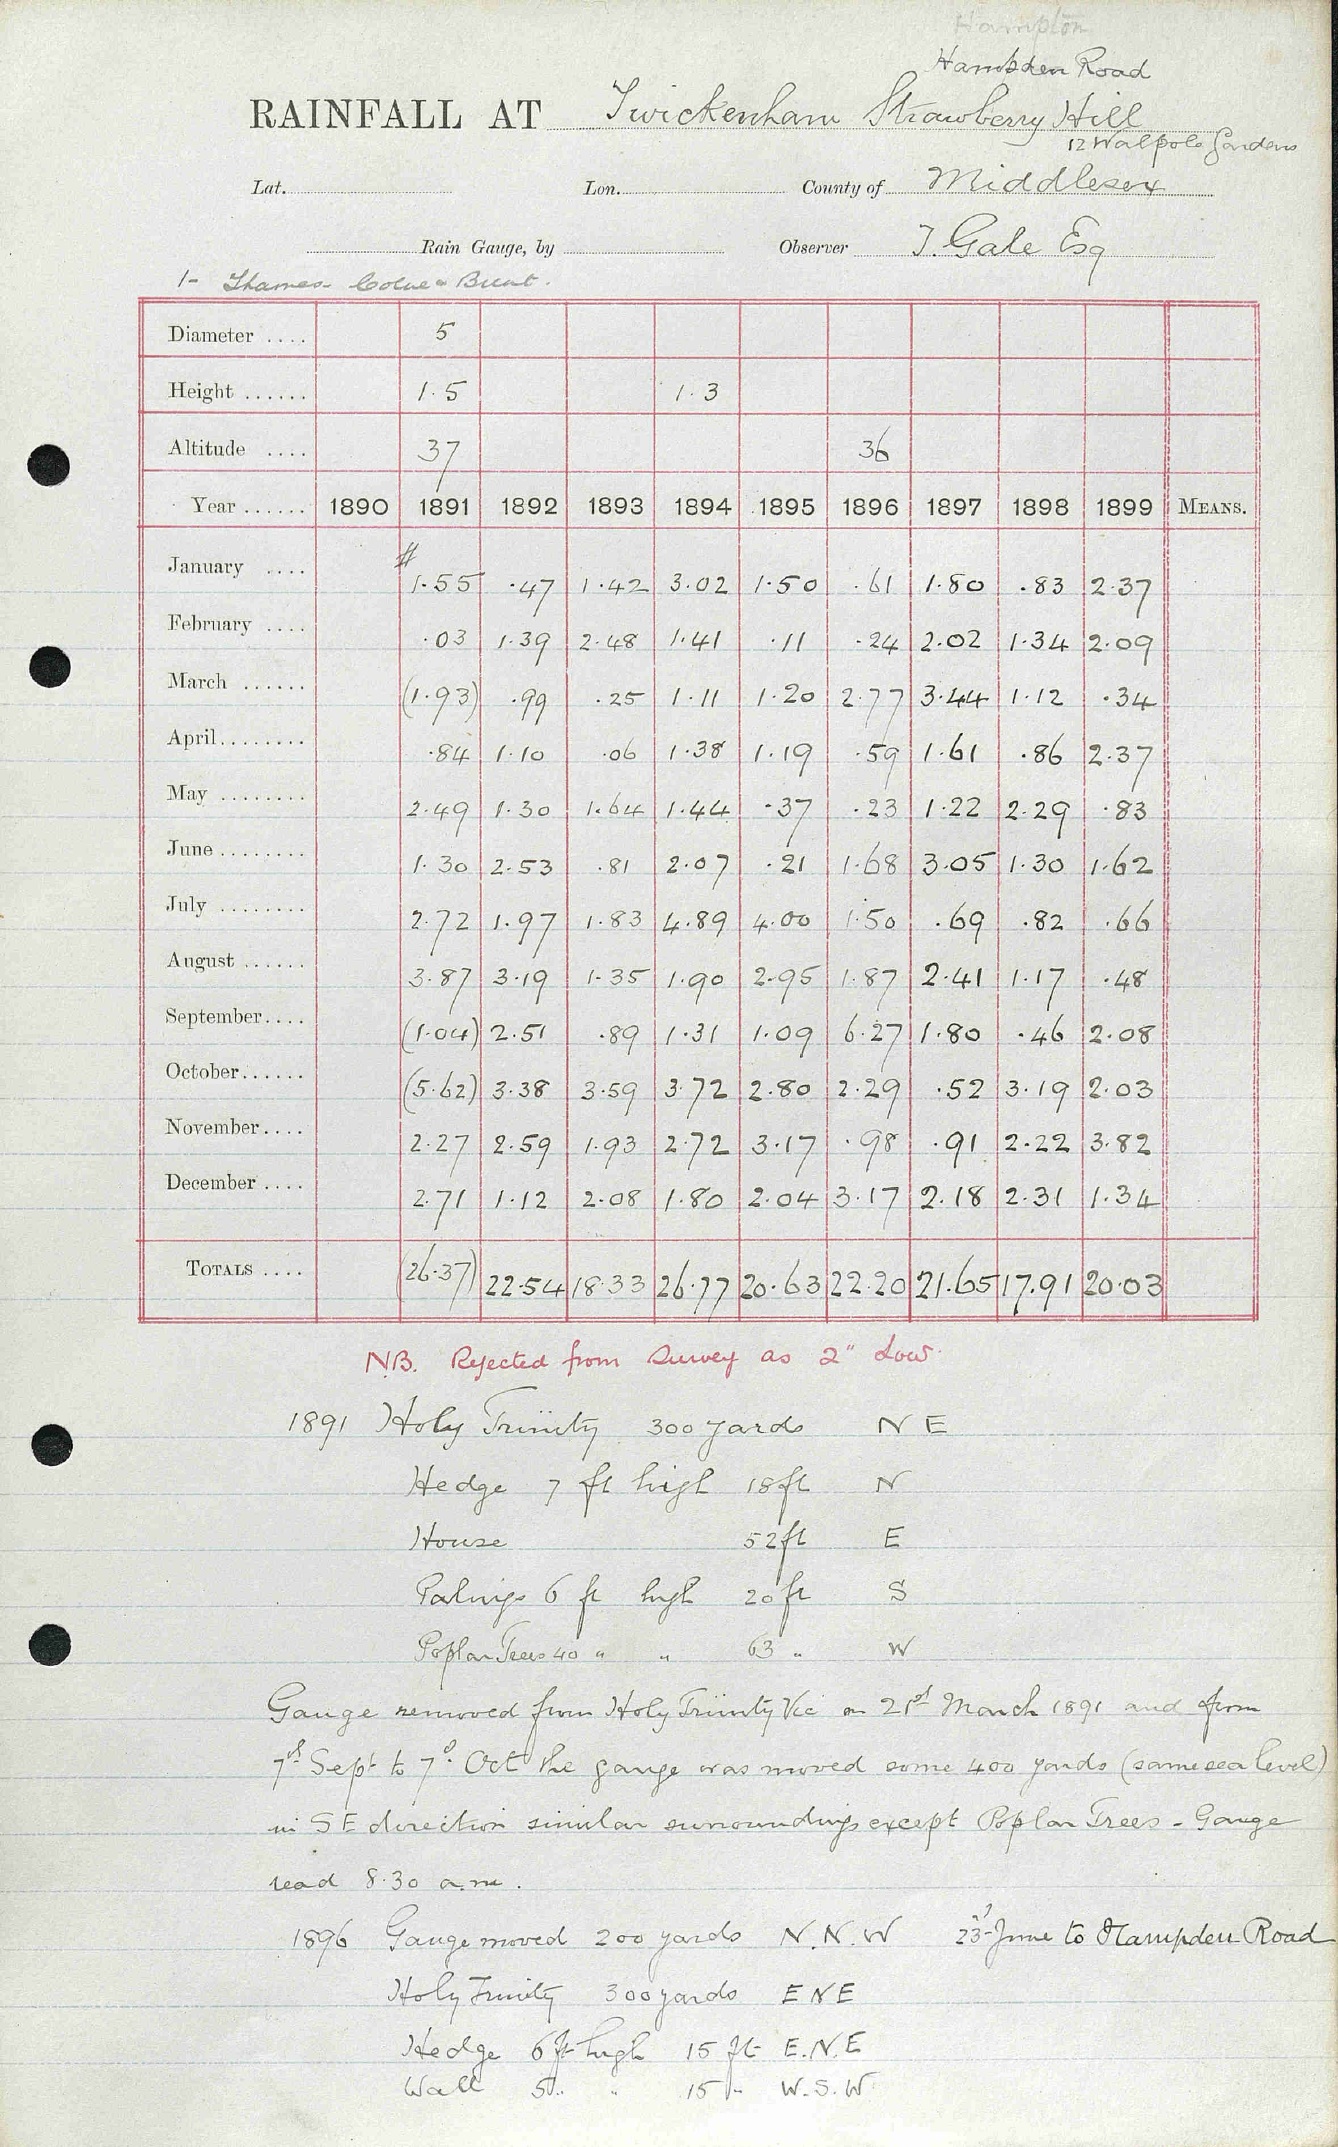 Hampton
Hambden Road
RAINFALL AT Twickenham Strawberry Hill
12 Walpole Gardens
Lat. Lon. County of Middlesex
Rain Gauge, by Observer J. Gale Esq
1- Thames- Colne & Brent.
Diameter .... 5
Height ...... 1.5 1.3
Altitude .... 37 36
Year ...... 1890 1891 1892 1893 1894 1895 1896 1897 1898 1899 MEANS.
#
January .... 1.55 .47 1.42 3.02 1.50 .61 1.80 .83 2.37
February .... .03 1.39 2.48 1.41 .11 .24 2.02 1.34 2.09
March ...... (1.93) .99 .25 1.11 1.20 2.77 3.44 1.12 .34
April........ .84 1.10 .06 1.38 1.19 .59 1.61 .86 2.37
May ........ 2.49 1.30 1.64 1.44 .37 .23 1.22 2.29 .83
June........ 1.30 2.53 .81 2.07 .21 1.68 3.05 1.30 1.62
July ........ 2.72 1.97 1.83 4.89 4.00 1.50 .69 .82 .66
August ...... 3.87 3.19 1.35 1.90 2.95 1.87 2.41 1.17 .48
September.... (1.04) 2.51 .89 1.31 1.09 6.27 1.80 .46 2.08
October...... (5.62) 3.38 3.59 3.72 2.80 2.29 .52 3.19 2.03
November.... 2.27 2.59 1.93 2.72 3.17 .98 .91 2.22 3.82
December .... 2.71 1.12 2.08 1.80 2.04 3.17 2.18 2.31 1.34
TOTALS .... (26.37) 22.54 18.33 26.77 20.63 22.20 21.65 17.91 20.03
NB. Rejected from Survey as 2" Low.
1891 Holy Trinity 300 yards N E
Hedge 7 ft high 18 ft N
House 52 ft E
Palings 6 ft high 20 ft S
Poplar Trees 40 " " 63 " W
Gauge removed from Holy Trinity Vic on 21st March 1891 and from
7th Sept to 7th Oct the gauge was moved some 400 yards (same sea level)
in S E direction similar surroundings except Poplar Trees - Gauge
read 8.30 a.m.
1896 Gauge moved 200 yards N.N.W 23rd June to Hampden Road
Holy Trinity 300 yards E N E
Hedge 6 ft high 15 ft E.N.E
Wall 5 " " 15 " W.S.W